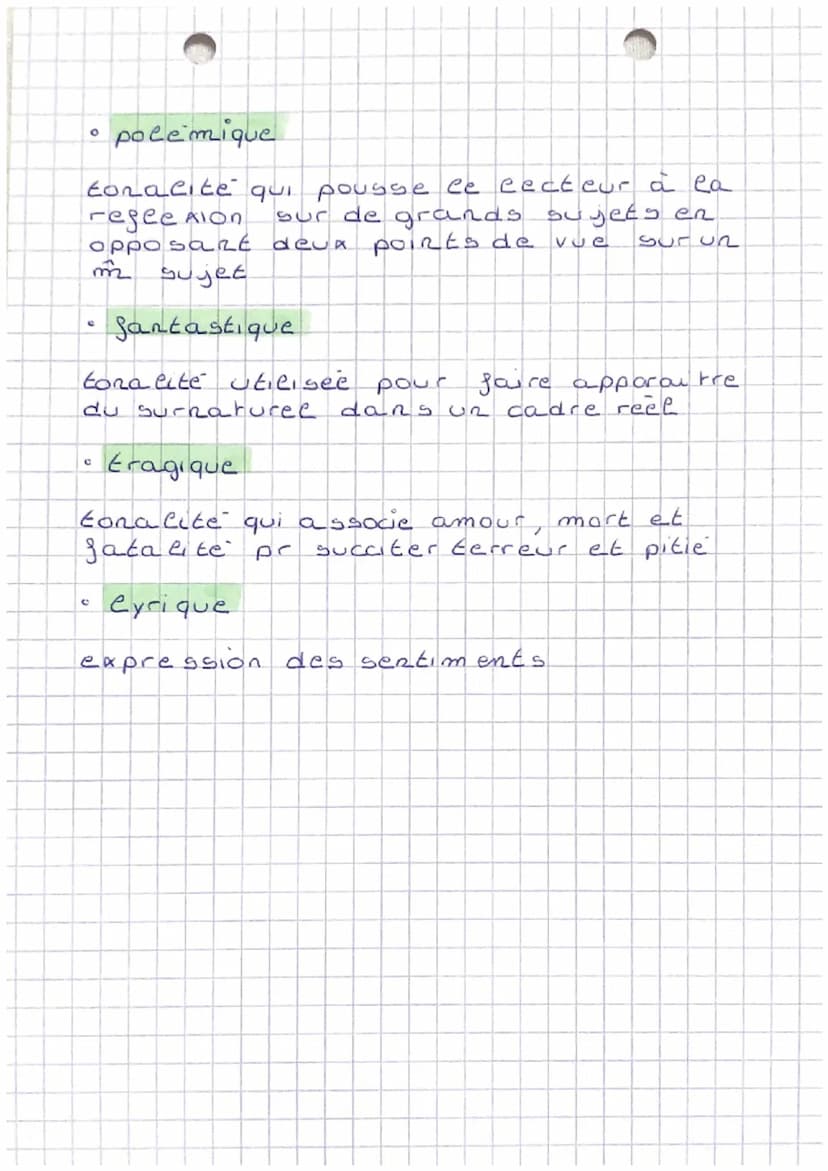 • polémique
tonalité qui pousse le lecteur à la
reflexion sur de grands sujets en
opposant deux points de vue sur un
m̂ sujet
• fantastique
tonalité utilisée pour faire apparaitre
du surnaturel dans un cadre réél
• tragique
tonalité qui associe amour, mort et
fatalité pr succiter terreur et pitié
• lyrique
expression des sentiments